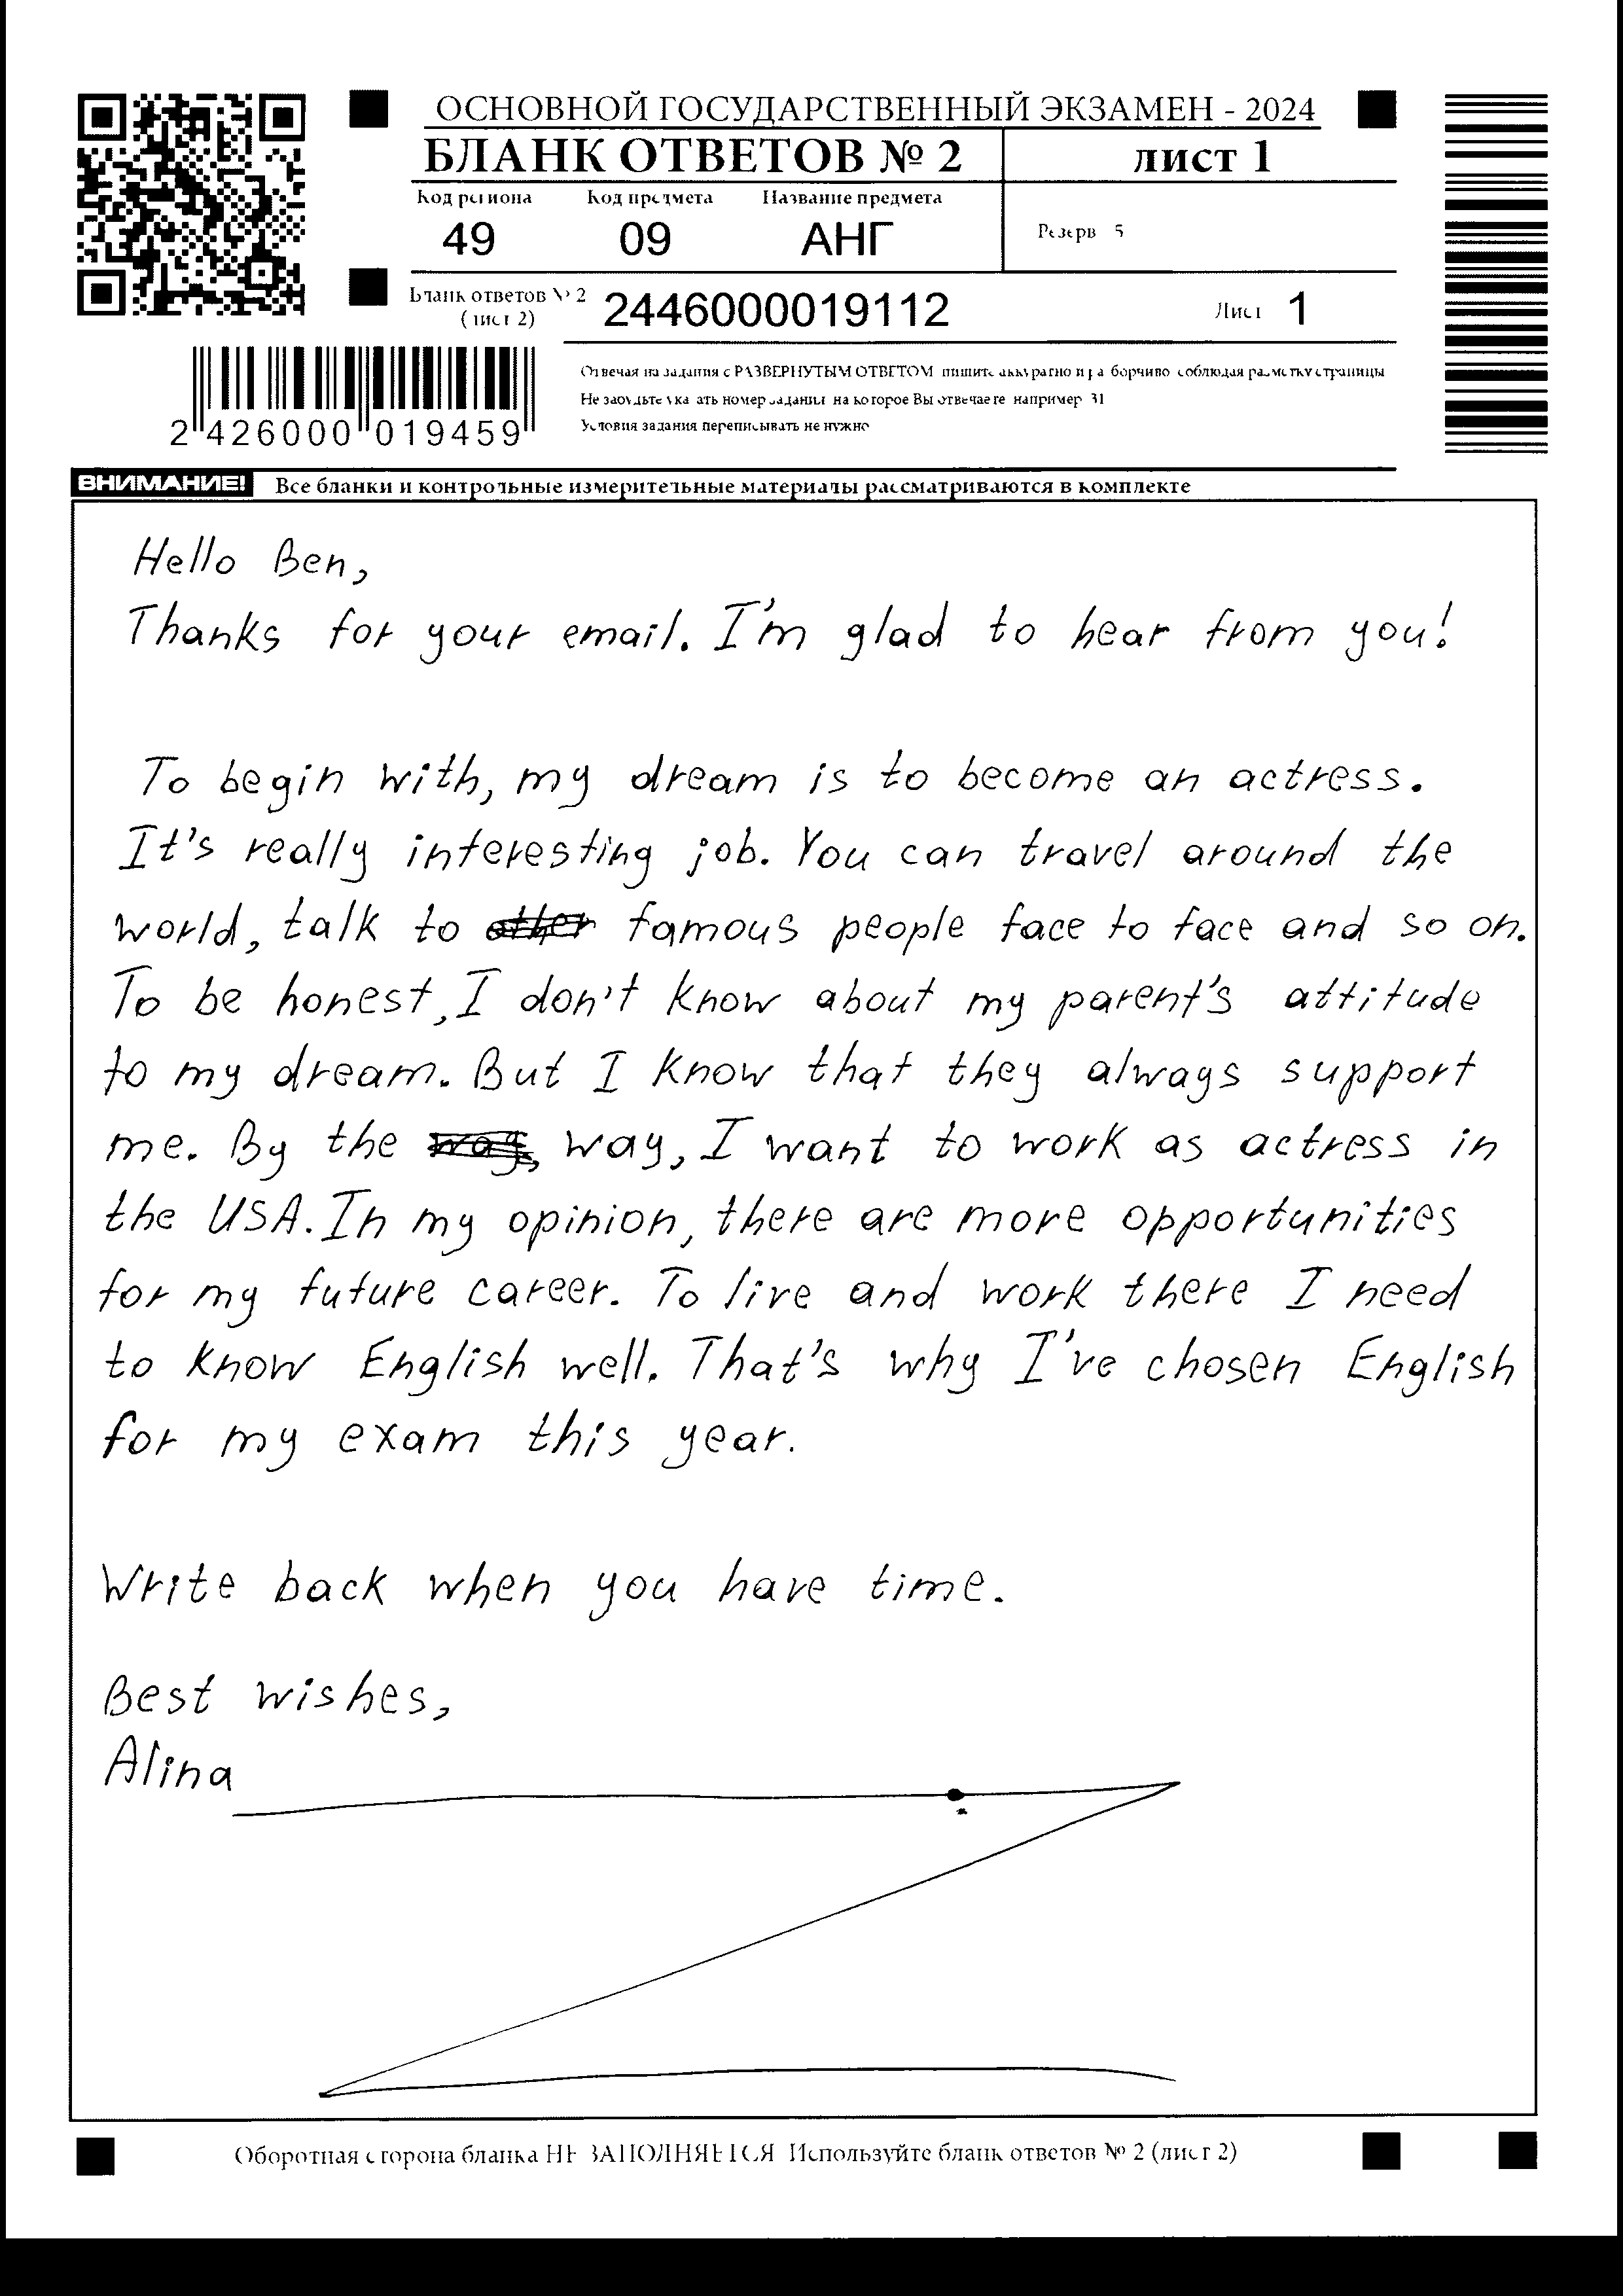 ОСНОВНОЙ ГОСУДАРСТВЕННЫЙ ЭКЗАМЕН - 2024
БЛАНК ОТВЕТОВ № 2 лист 1
Код региона Код предмета Название предмета
49 09 АНГ Резерв 5
Бланк ответов № 2 (лист 2) 2446000019112 Лист 1
Отвечая на задания с РАЗВЕРНУТЫМ ОТВЕТОМ пишите аккуратно и разборчиво соблюдая разметку страницы
Не забудьте указать номер задания на которое Вы отвечаете например 31
Условия задания переписывать не нужно
2 426000 019459
ВНИМАНИЕ! Все бланки и контрольные измерительные материалы рассматриваются в комплекте
Hello Ben,
Thanks for your email. I'm glad to hear from you!
To begin with, my dream is to become an actress.
It's really interesting job. You can travel around the
world, talk to famous people face to face and so on.
To be honest, I don't know about my parent's attitude
to my dream. But I know that they always support
me. By the way, I want to work as actress in
the USA. In my opinion, there are more opportunities
for my future career. To live and work there I need
to know English well. That's why I've chosen English
for my exam this year.
Write back when you have time.
Best wishes,
Alina
Оборотная сторона бланка НЕ ЗАПОЛНЯЕТСЯ Используйте бланк ответов № 2 (лист 2)